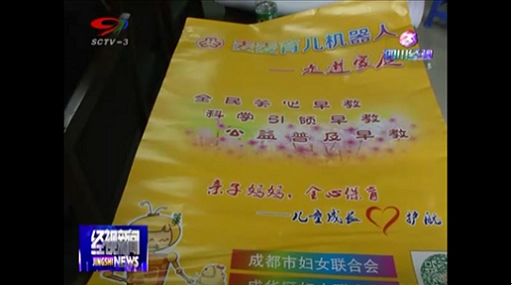 SCTV-3
育儿机器人
——走进家庭
全民关心早教
科学引领早教
公益普及早教
亲子妈妈、全心保育
——儿童成长 护航
成都市妇女联合会
NEWS